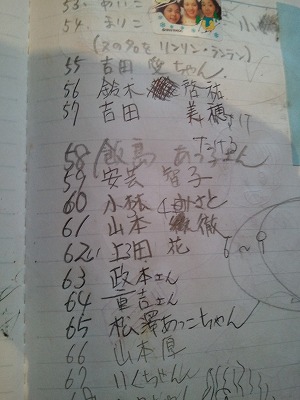 53. めいこ
54. まりこ
(又の名をリンリン・ランラン)
55 吉田 ちゃん
56 鈴木 智祐
57 吉田 美穂
たける
58 飯島 あっちょん
59 安芸 智子
60 小林 みさと
61 山本 徹
62 上田 花
63 政本さん
64 重吉さん
65 松澤あつこちゃん
66 山本厚
67 いくちゃん